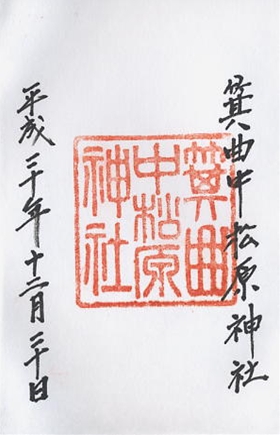 箕曲中松原神社
箕曲
中松原
神社
平成三十年十二月三十日